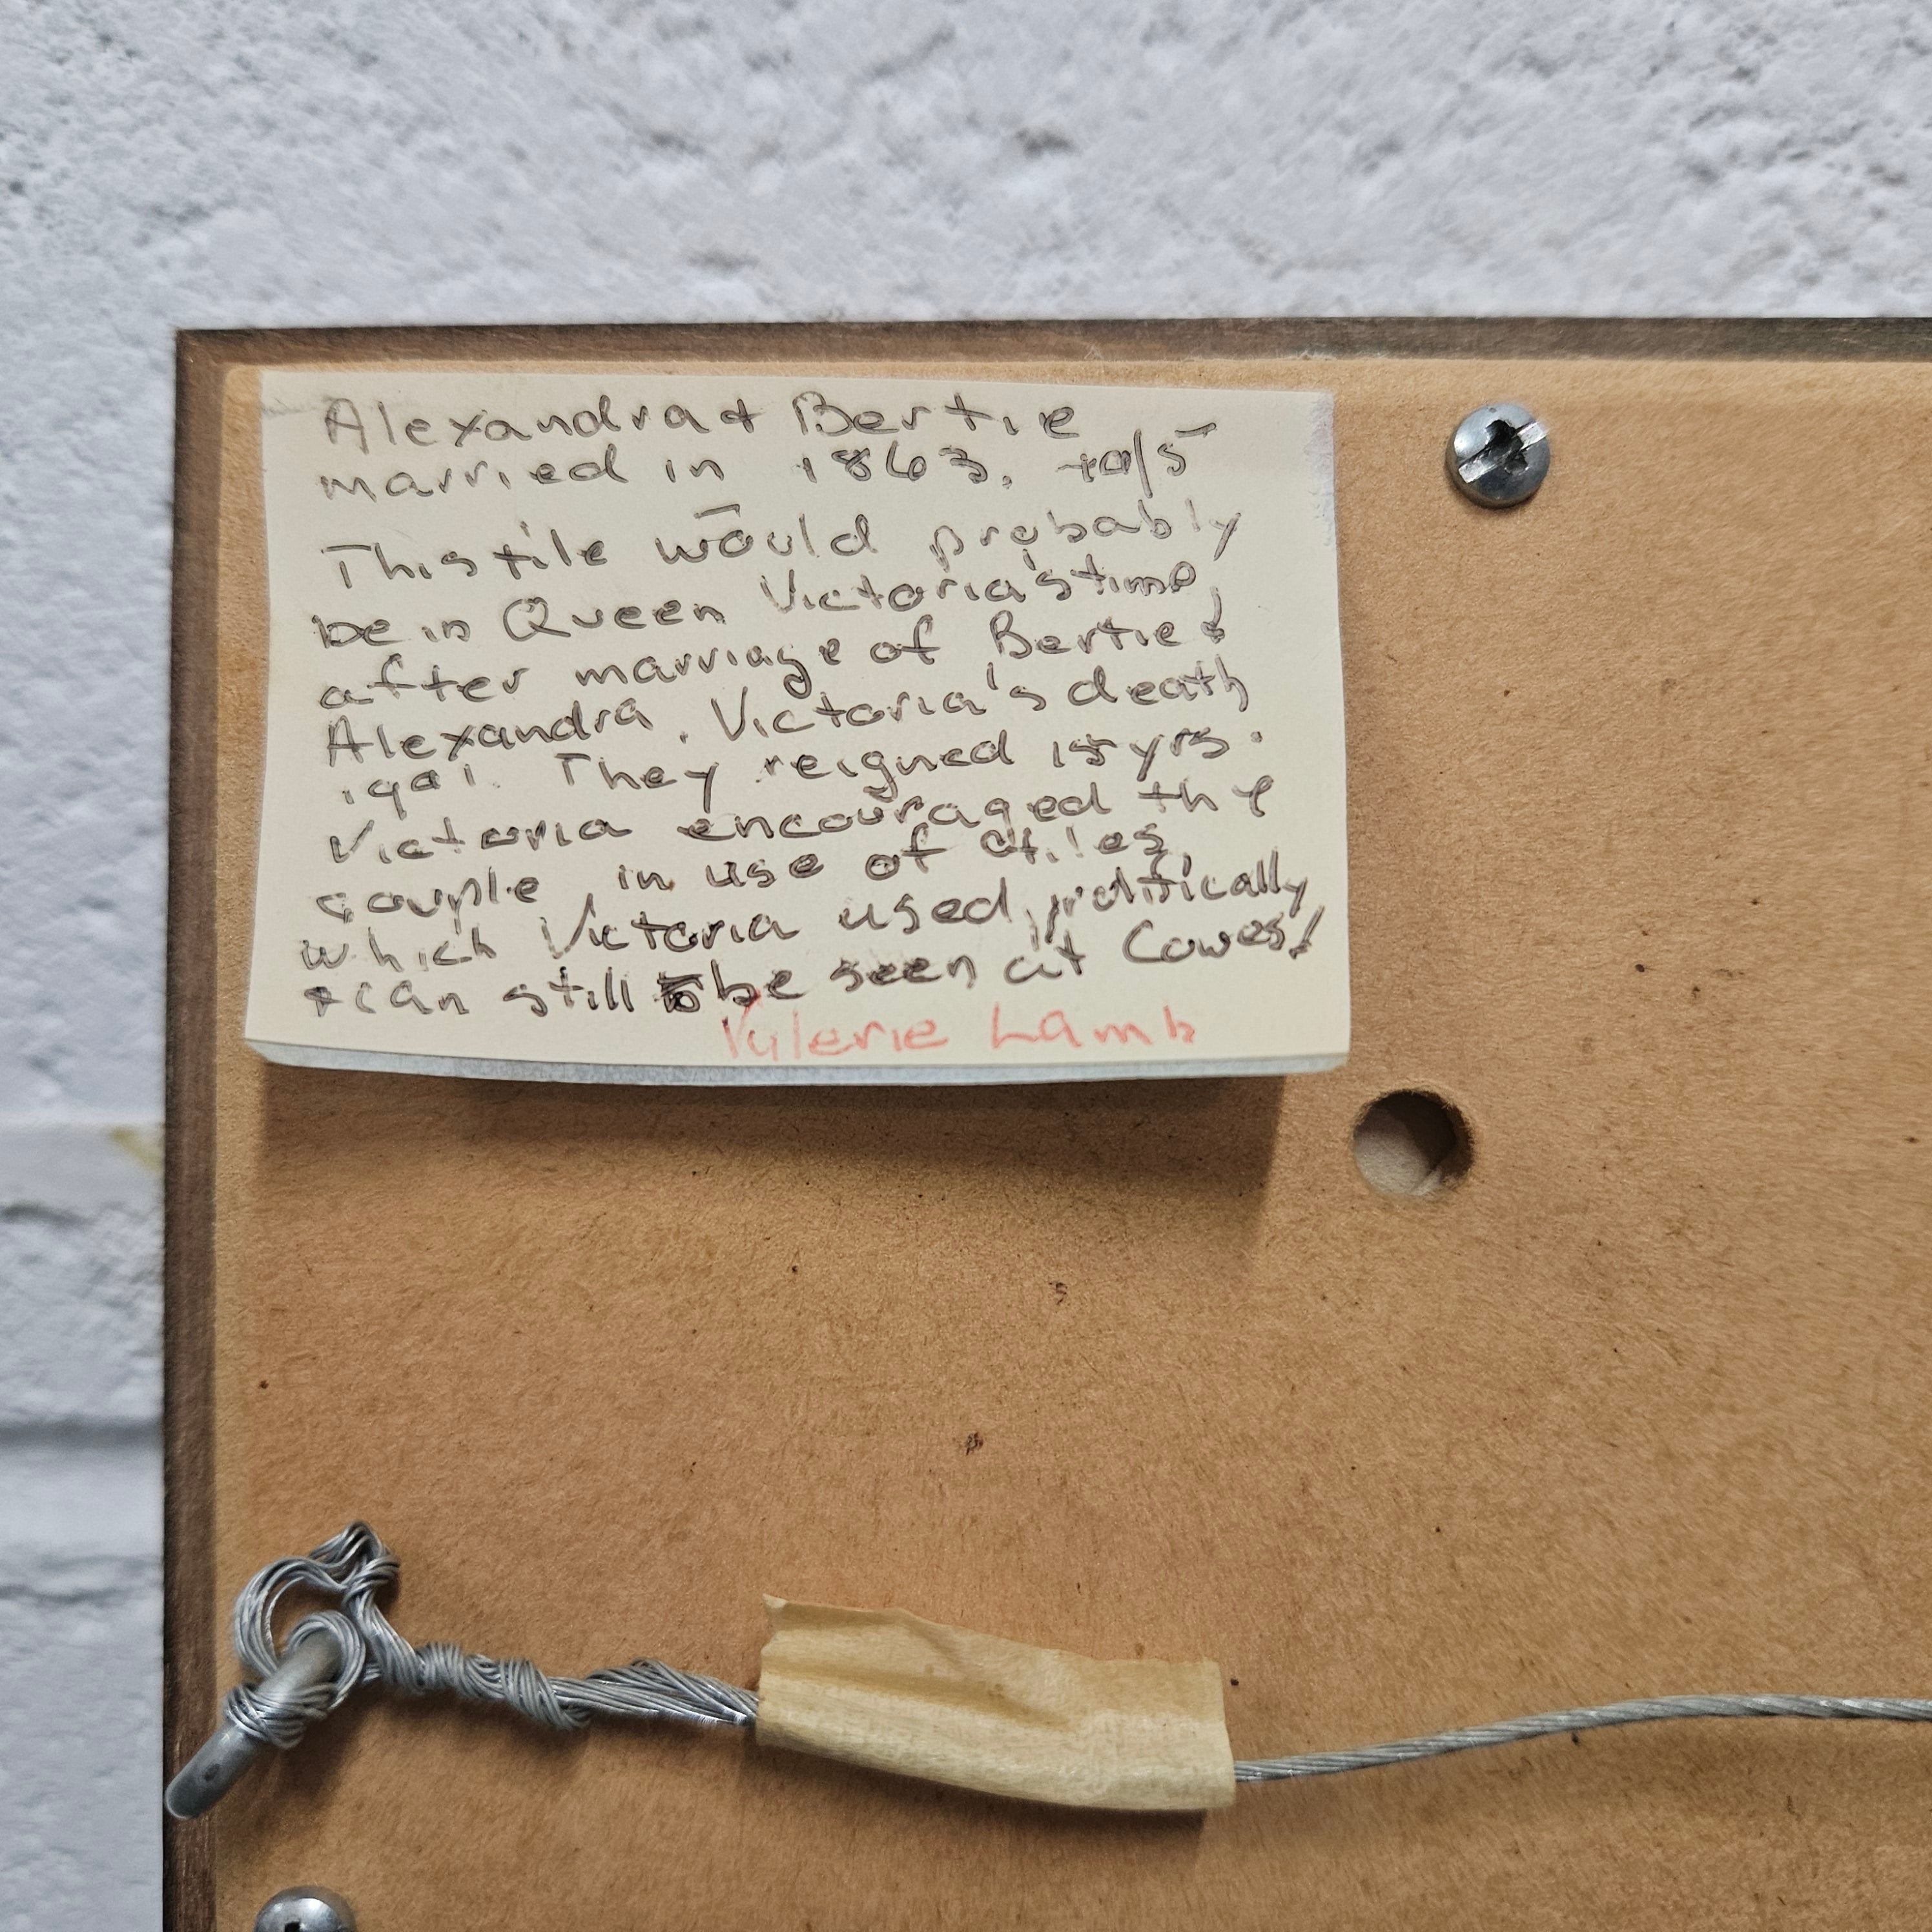 Alexandra & Bertie
married in 1863.
This tile would probably
be in Queen Victoria's time,
after marriage of Bertie &
Alexandra. Victoria's death
1901. They reigned yrs.
Victoria encouraged the
couple in use of tiles,
which Victoria used prolifically
+ can still be seen at Cowes!
Valerie Lamb